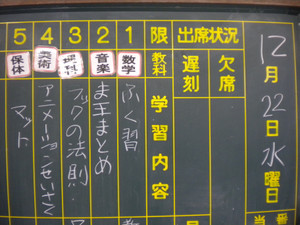 12月22日水曜日
当番
出席状況
欠席
遅刻
限 1 2 3 4 5
教科 数学 音楽 理科 美術 保体
学習内容
ふく習
まとめ
フックの法則
アニメーションせいさく
マット